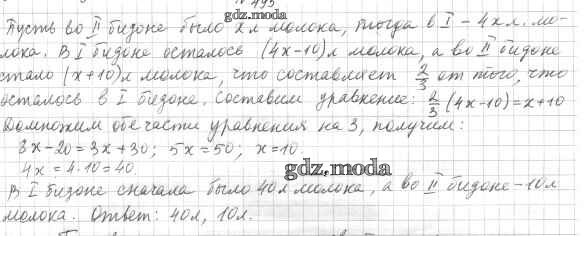 495
gdz.moda
Пусть во II бидоне было x л молока, тогда в I – 4x л. мо-
лока. В I бидоне осталось (4x-10) л молока, а во II бидоне
стало (x+10) л молока, что составляет 2/3 от того, что
осталось в I бидоне. Составим уравнение: 2/3 (4x-10) = x+10
Домножим обе части уравнения на 3, получим:
8x-20=3x+30; 5x=50; x=10.
4x = 4·10 = 40.
gdz.moda
В I бидоне сначала было 40 л молока, а во II бидоне - 10 л
молока. Ответ: 40л, 10л.